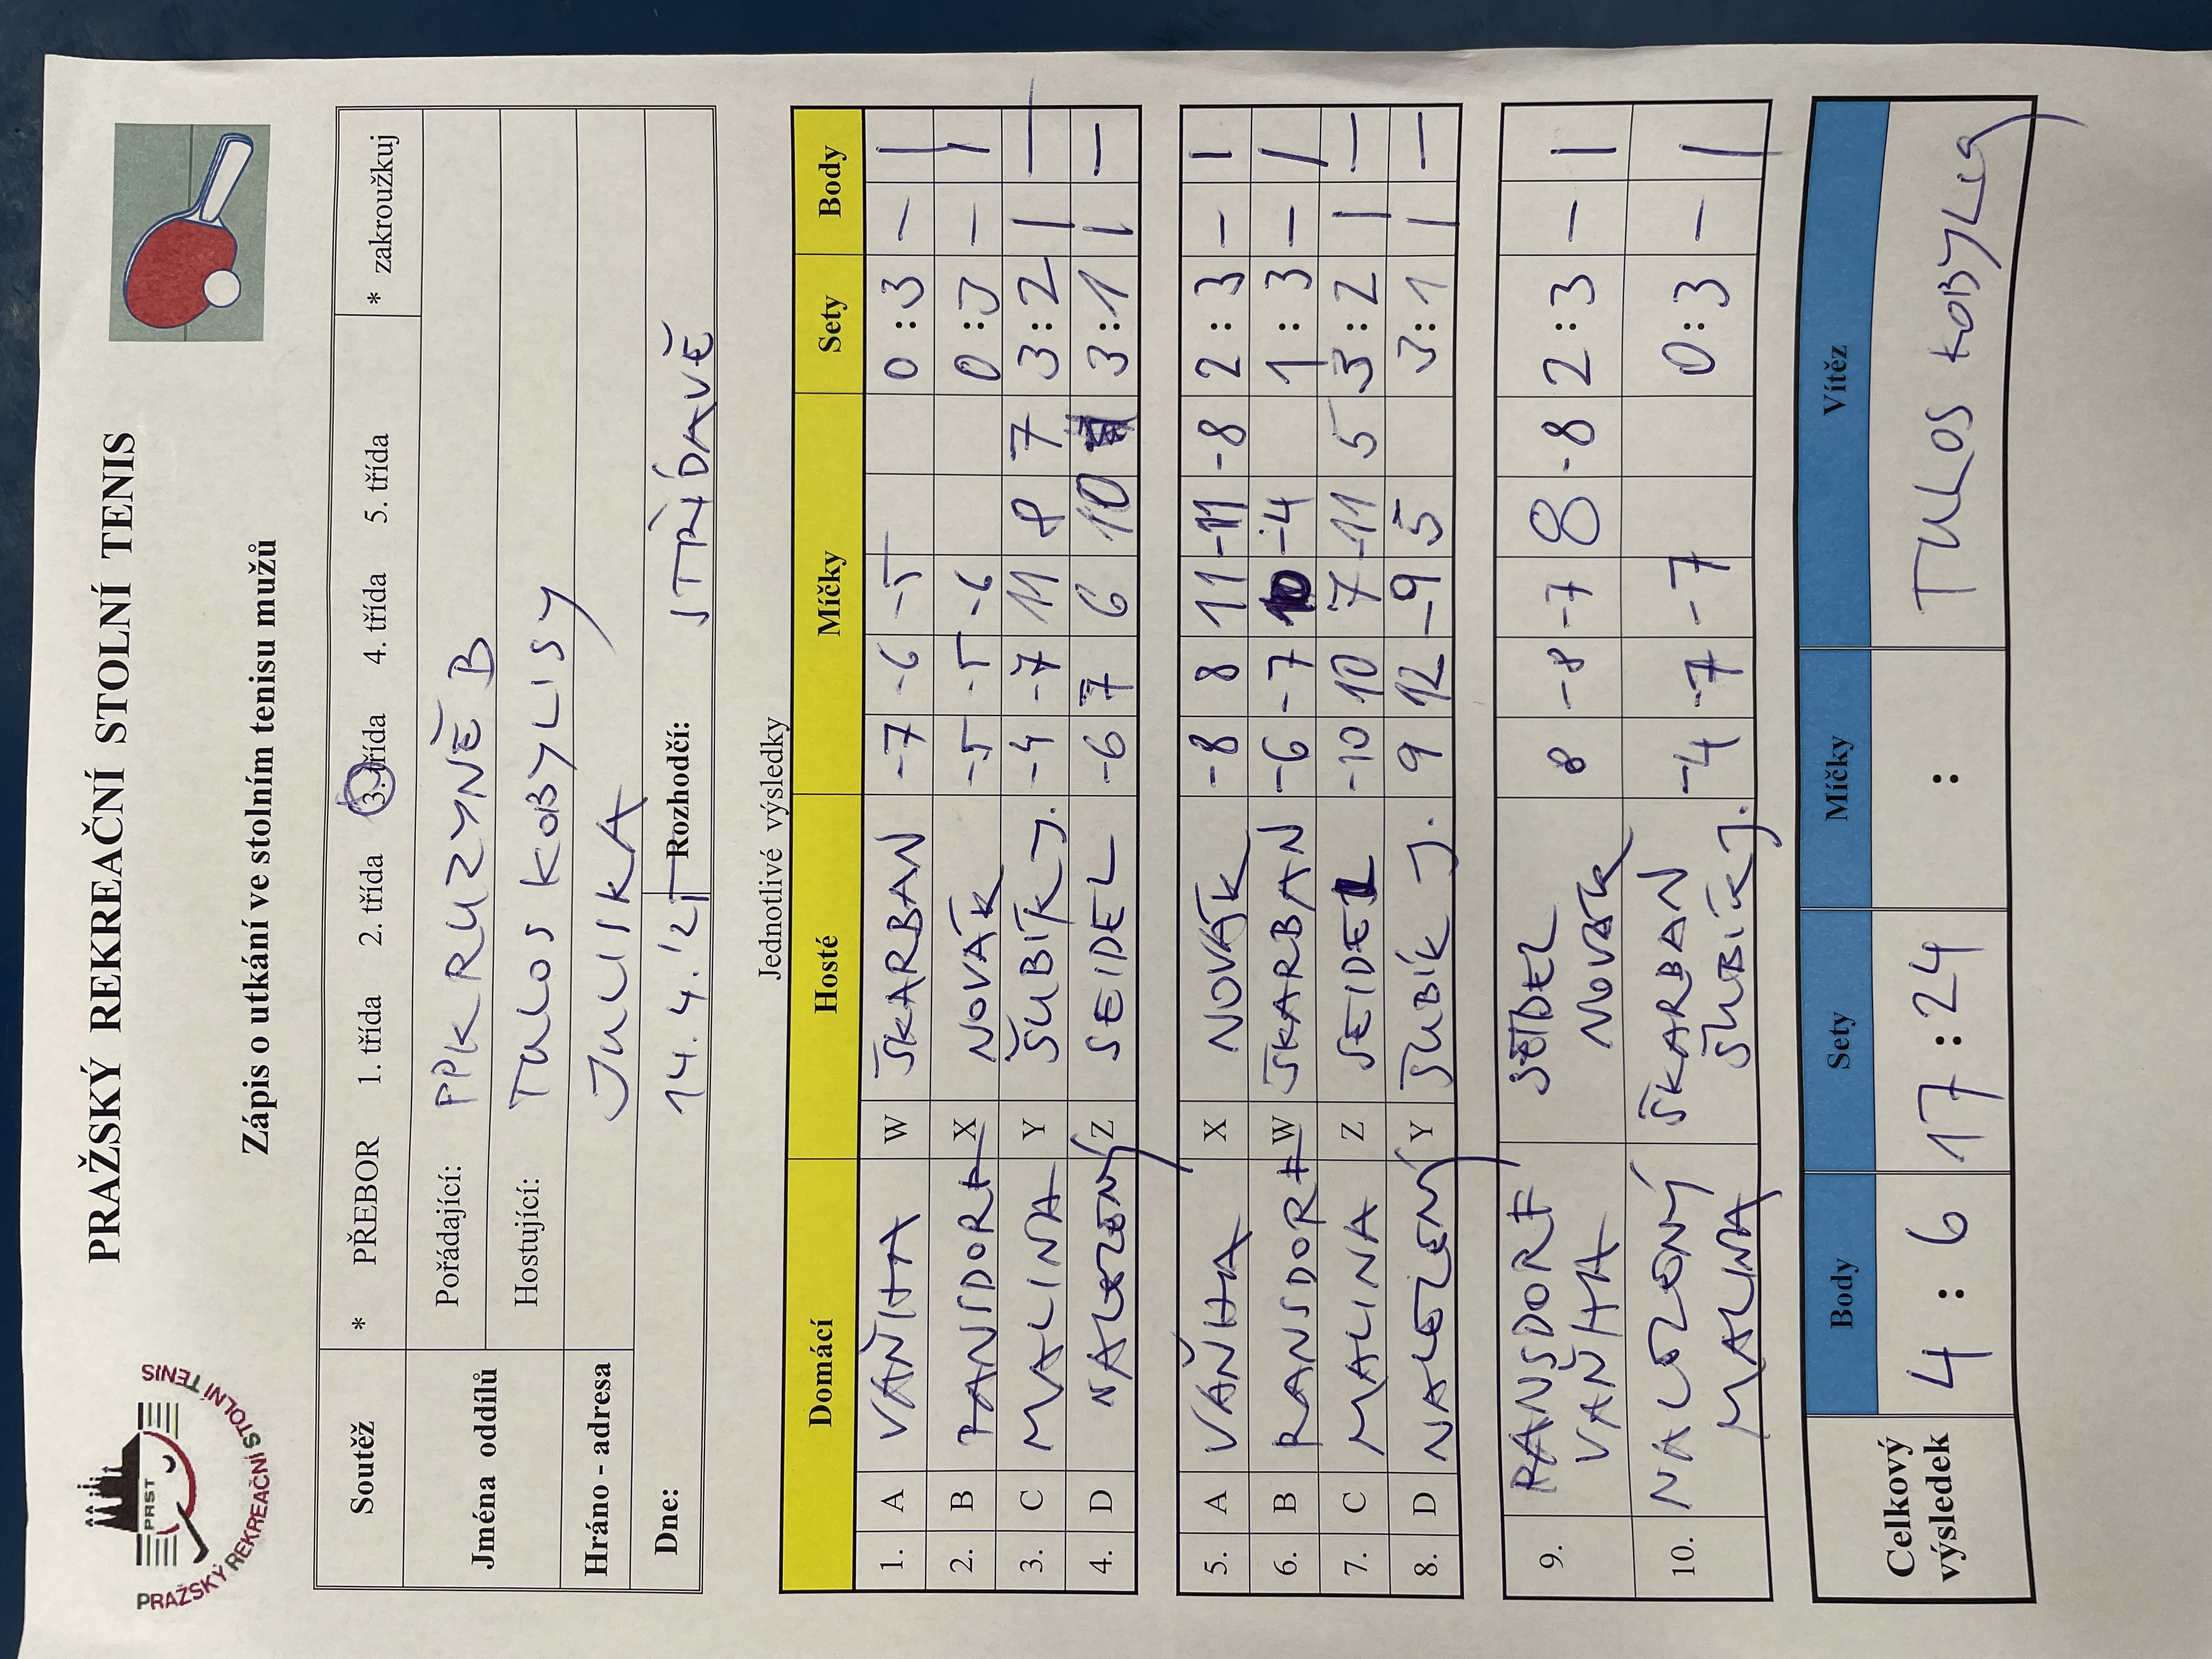 PRAŽSKÝ REKREAČNÍ STOLNÍ TENIS
PRST
PRAŽSKÝ REKREAČNÍ STOLNÍ TENIS
Zápis o utkání ve stolním tenisu mužů
Soutěž * PŘEBOR 1. třída 2. třída 3. třída 4. třída 5. třída * zakroužkuj
Jména oddílů Pořádající: PPK RUZYNĚ B
Hostující: TULOS KOBYLISY
Hráno - adresa JULISKA
Dne: 14.4.'25 Rozhodčí: STŘÍDAVĚ
Jednotlivé výsledky
Domácí Hosté Míčky Sety Body
1. A VAŇHA W ŠKARBAN -7 -6 -5 0:3 - 1
2. B RANSDORF X NOVÁK -5 -5 -6 0:3 - 1
3. C MALINA Y ŠUBÍK J. -4 -7 11 8 7 3:2 1 -
4. D NALEZENÝ Z SEIDEL -6 7 6 10 3:1 1 -
5. A VAŇHA X NOVÁK -8 8 11 -11 -8 2:3 - 1
6. B RANSDORF W ŠKARBAN -6 -7 10 -4 1:3 - 1
7. C MALINA Z SEIDEL -10 10 7 -11 5 3:2 1 -
8. D NALEZENÝ Y ŠUBÍK J. 9 12 -9 5 3:1 1 -
9. RANSDORF SEIDEL 8 -8 -7 8 -8 2:3 - 1
VAŇHA NOVÁK
10. NALEZENÝ ŠKARBAN -4 -7 -7 0:3 - 1
MALINA ŠUBÍK J.
Celkový výsledek Body Sety Míčky Vítěz
4:6 17:24 : TULOS KOBYLISY